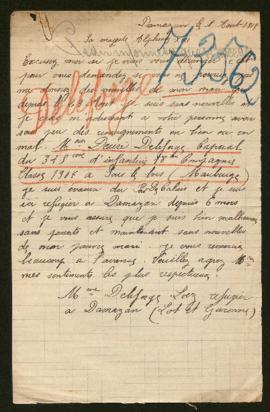 Damazan le 1 Aout 1915
Sa majesté Alphonse
Excusez moi si je vous dérange, c'est
pour vous demander si vous pouvez
me donnez des nouvelles de mon mari
depuis le 3 Aout je suis sans nouvelles
je pense en m'adressant a votre personne avoir
sous peu des renseignements en bien ou en
mal. Mon Desiré Delefage Caporal
du 348me d'infanterie 18me Compagnie
Classe 1904 a Sous le bois (Maubeuge)
je suis evacué du Calais et je suis
ici refugier a Damazan depuis 6 mois
et je vous assure que je suis bien malheureuse
sans parents et maintenant sans nouvelles
de mon pauvre mari. je vous remercie
beaucoup a l'avance. Veuillez agreez
mes sentiments les plus respectueux.
Mme Delefage refugier
a Damazan (Lot et Garonne)
Delefage
73562